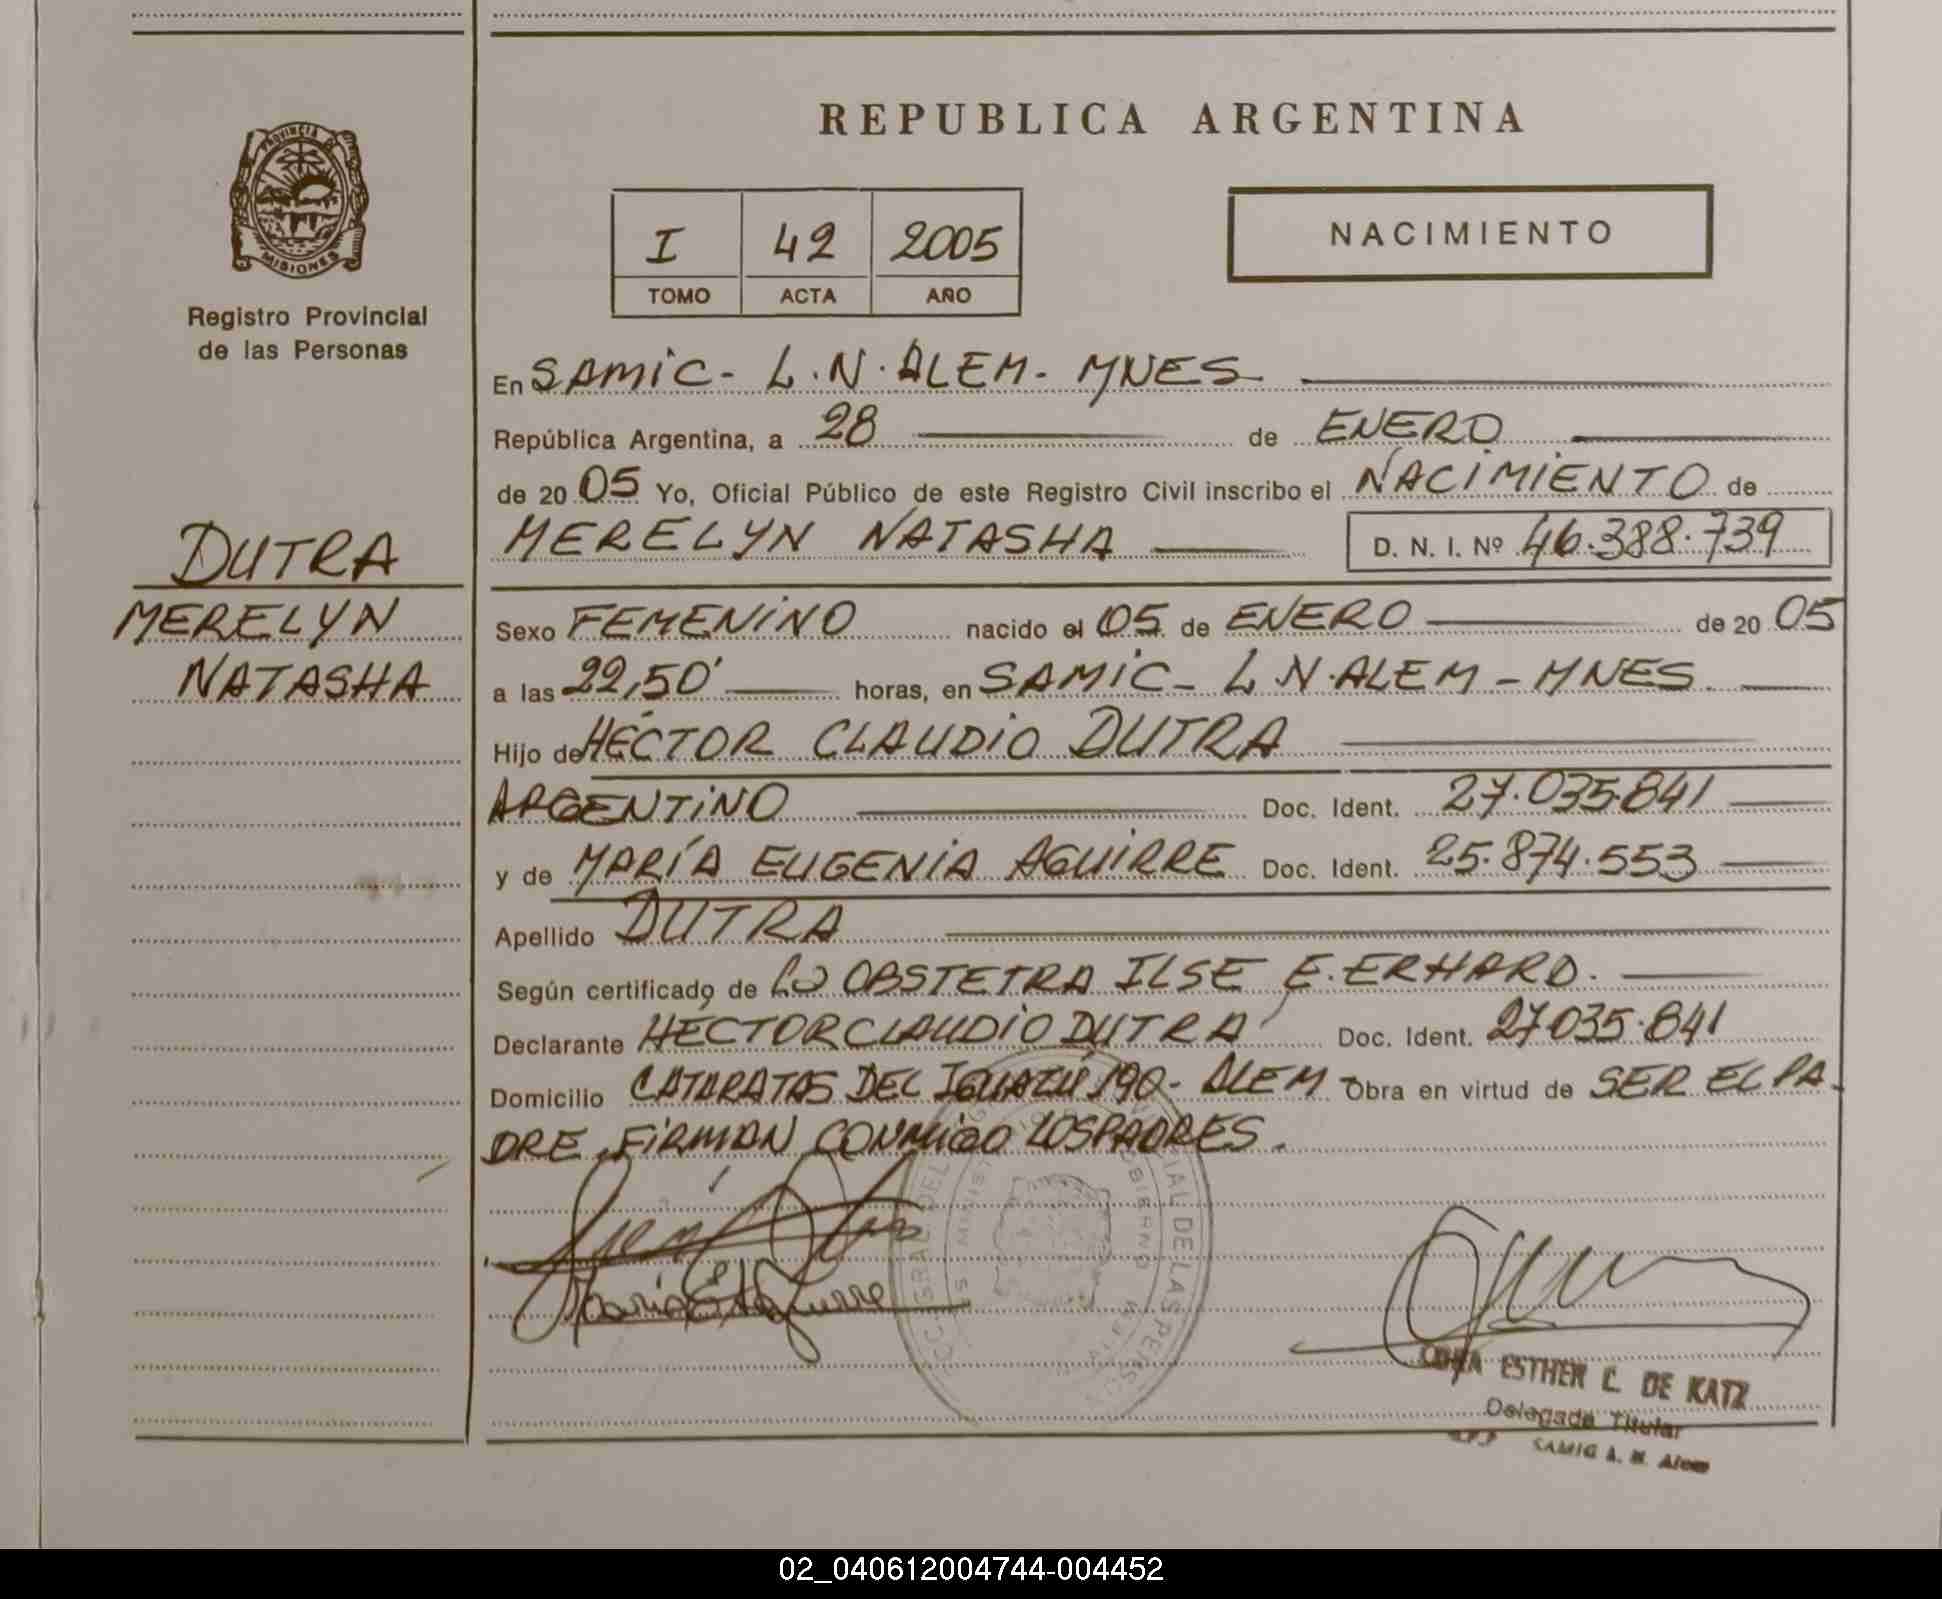 PROVINCIA DE
MISIONES
Registro Provincial
de las Personas
DUTRA
MERELYN
NATASHA
REPUBLICA ARGENTINA
I 42 2005
TOMO ACTA AÑO
NACIMIENTO
En SAMIC - L.N. ALEM - MNES
República Argentina, a 28 de ENERO
de 20 05 Yo, Oficial Público de este Registro Civil inscribo el NACIMIENTO de
MERELYN NATASHA D. N. I. Nº 46.388.739
Sexo FEMENINO nacido el 05 de ENERO de 20 05
a las 22,50' horas, en SAMIC - L.N. ALEM - MNES.
Hijo de HECTOR CLAUDIO DUTRA
ARGENTINO Doc. Ident. 27.035.841
y de MARÍA EUGENIA AGUIRRE Doc. Ident. 25.874.553
Apellido DUTRA
Según certificado de LA OBSTETRA ILSE E. ERHARD.
Declarante HECTOR CLAUDIO DUTRA Doc. Ident. 27.035.841
Domicilio CATARATAS DEL IGUAZÚ 190 - ALEM - Obra en virtud de SER EL PA-
DRE, FIRMAN CONMIGO LOS PADRES.
Maria E Aguirre
ESTHER C. DE KATZ
Delegada Titular
SAMIC L. N. Alem
02_040612004744-004452